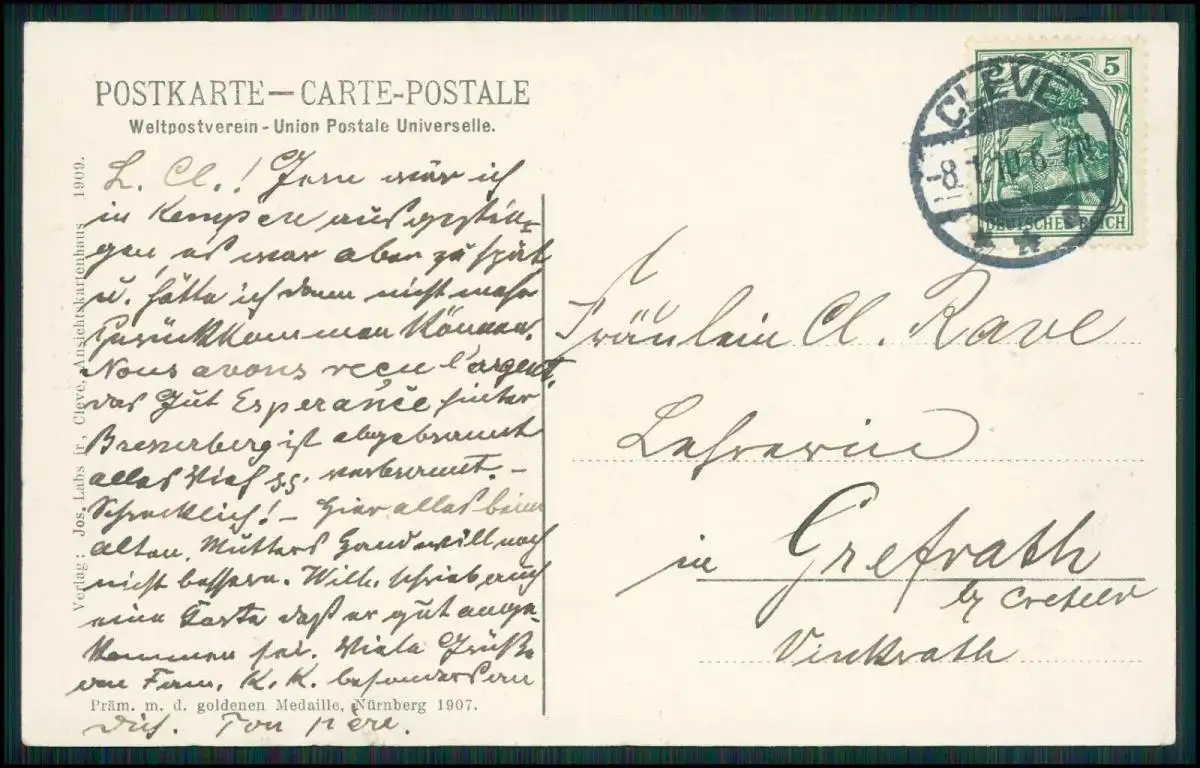 POSTKARTE — CARTE-POSTALE
Weltpostverein - Union Postale Universelle.
L. Cl.! Gern wär ich
in Kempen ausgestie-
gen, es war aber zu spät
u. hätte ich dann nicht mehr
zurückkommen können.
Nous avons reçu l'argent.
das Gut Esperance hinter
Bresserberg ist abgebrannt
alles Vieh verbrannt. –
Schrecklich! – Hier alles beim
alten. Mutters Hand will noch
nicht bessern. Wilh. schrieb auch
eine Karte daß er gut ange-
kommen sei. Viele Grüße
an Fam. K. K. besonders an
dich. Ton père.
Verlag: Jos. Labs jr., Cleve, Ansichtskartenhaus 1909.
Präm. m. d. goldenen Medaille, Nürnberg 1907.
5
DEUTSCHES REICH
CLEVE
-8.1.10.6-7N
Fräulein Cl. Rave
Lehrerin
in Grefrath
by Crefeld
Vinkrath